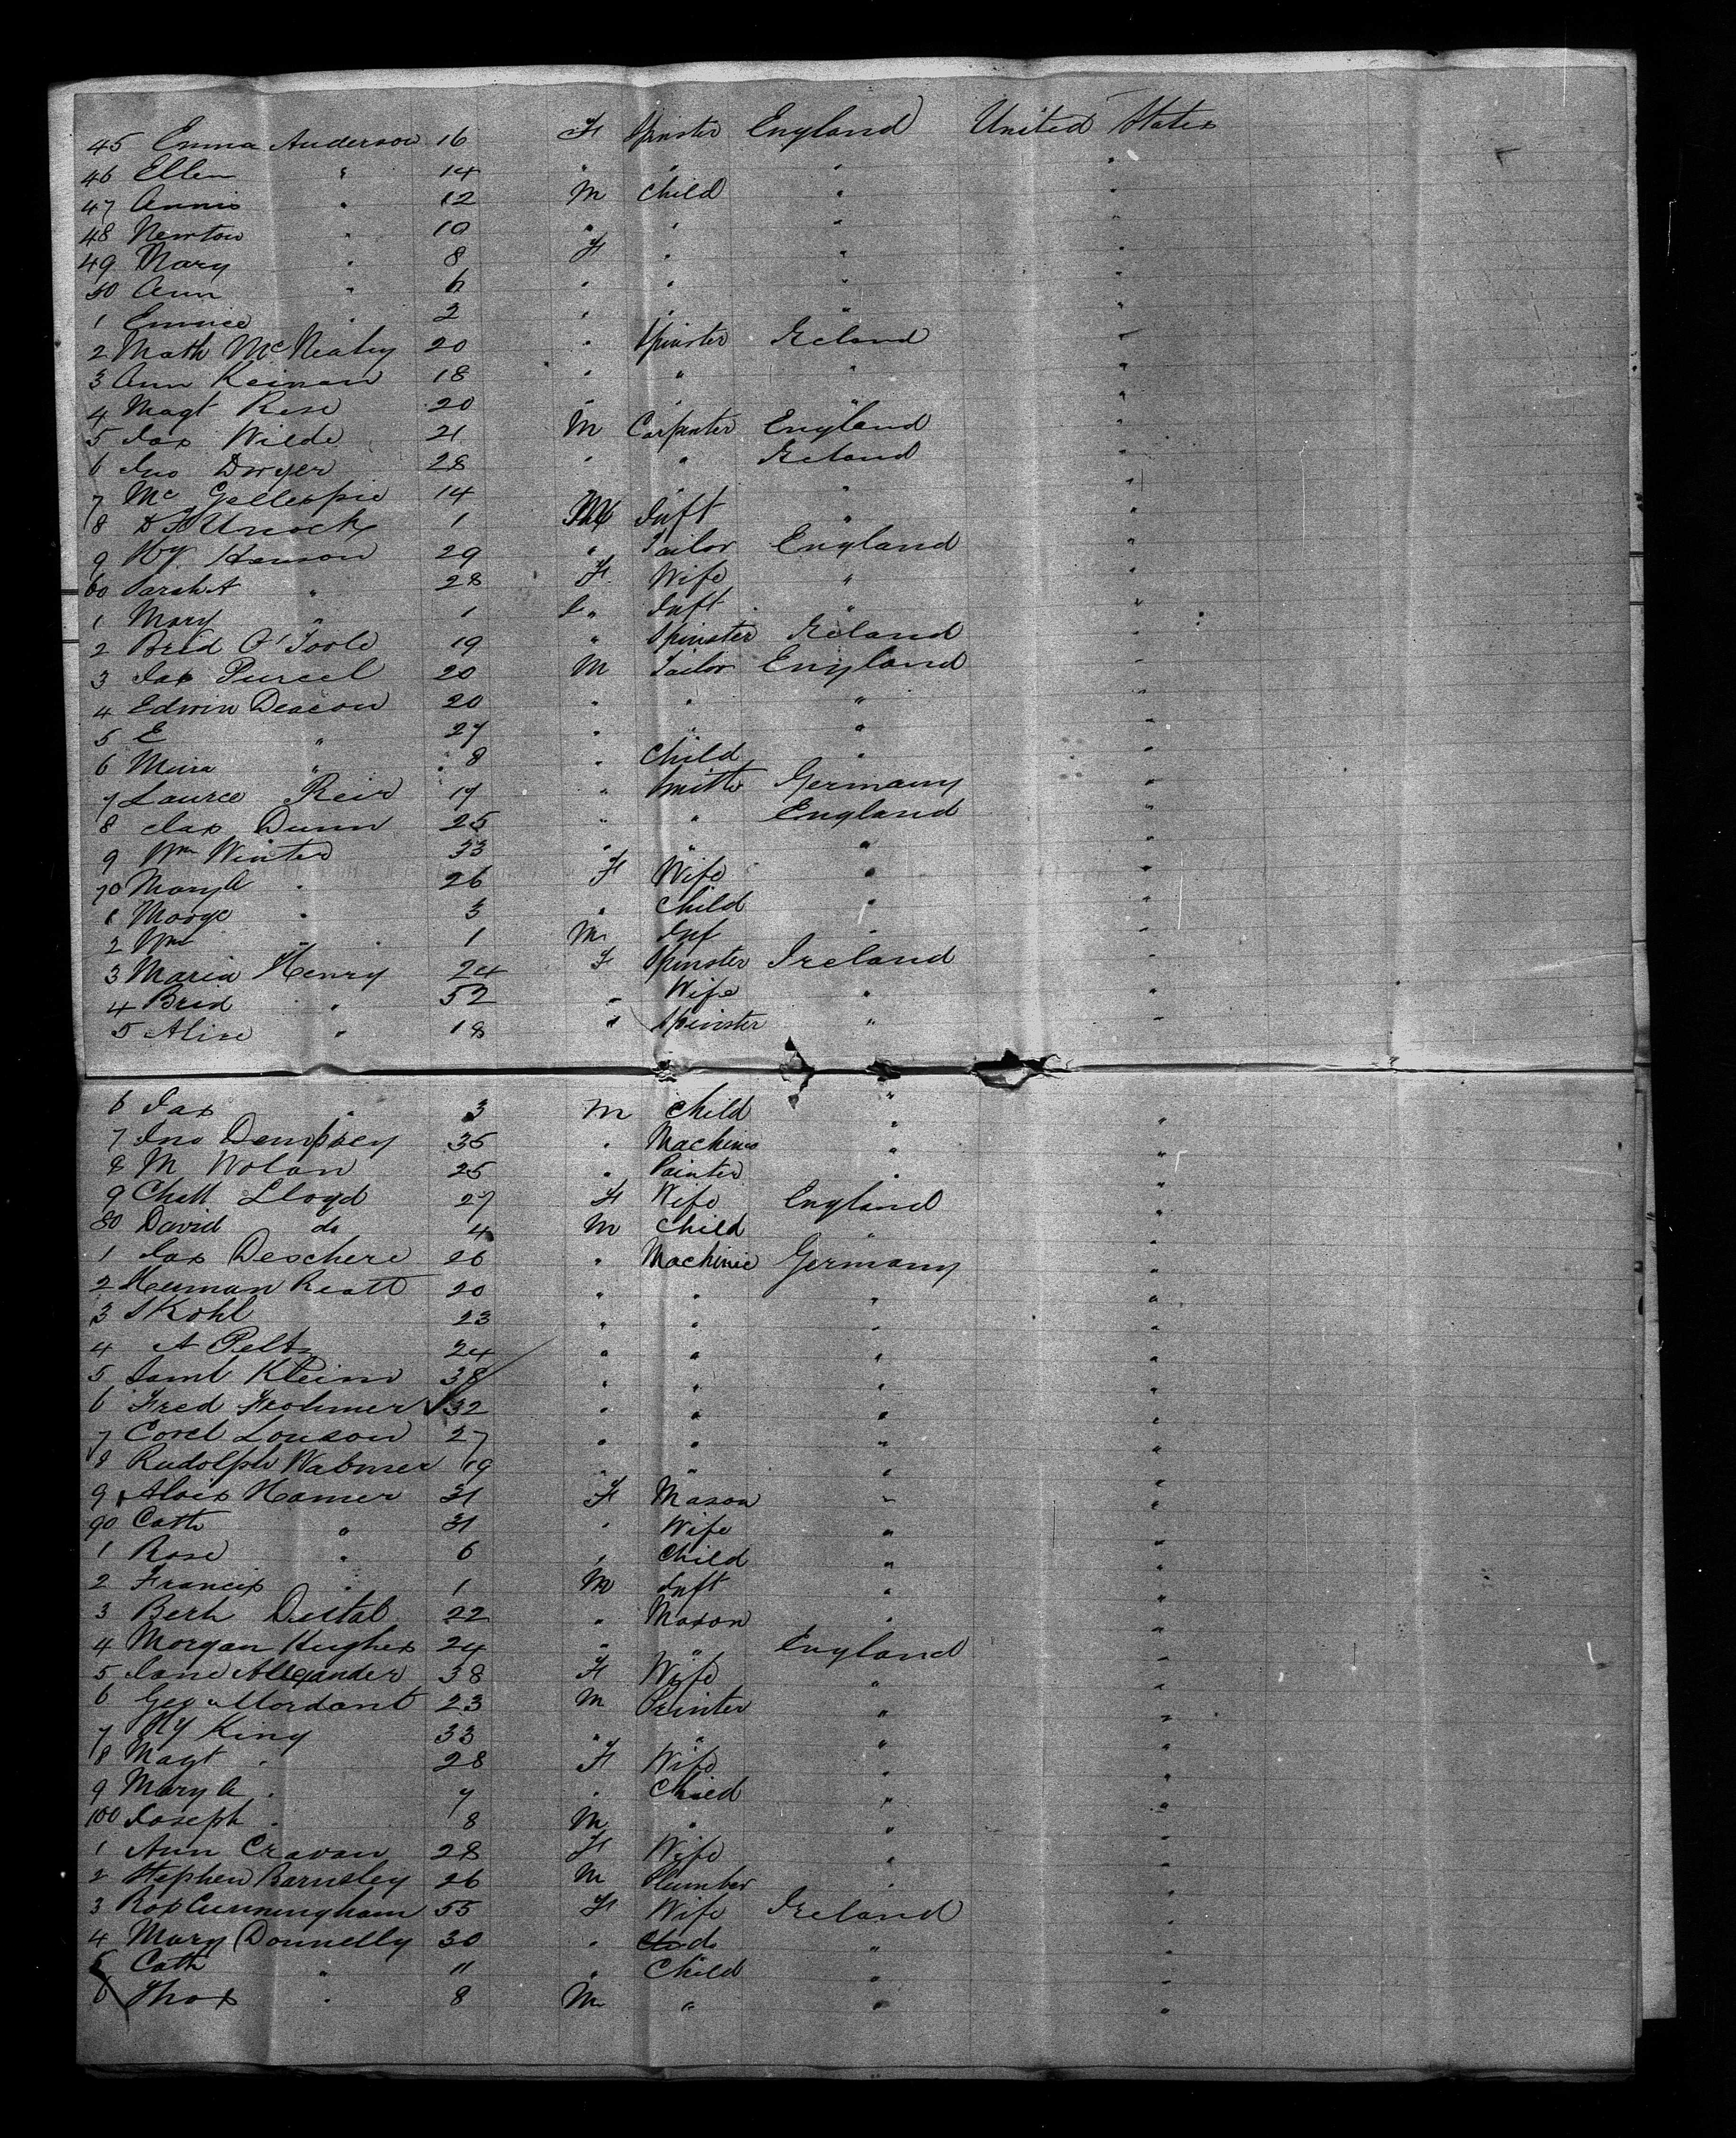 45 Emma Anderson 16 F Spinster England United States
46 Ellen " 14 " " " "
47 Annis " 12 M Child " "
48 Newton " 10 " " " "
49 Mary " 8 F " " "
50 Ann " 6 " " " "
1 " 2 " " " "
2 Math McNealey 20 " Spinster Ireland "
3 Ann Keinan 18 " " " "
4 Magt Rese 20 " " " "
5 Jas Wilde 21 M Carpenter England "
6 Jno Dwyer 28 " " Ireland "
7 Mc Gellespie 14 " " " "
8 1 M Inft " "
9 Hy Henson 29 " Tailor England "
60 Sarah A " 28 F Wife " "
1 Mary " 1 " Inft " "
2 Brid O'Toole 19 " Spinster Ireland "
3 Jas Purcel 20 M Tailor England "
4 Edwin Deacon 20 " " " "
5 E " 27 " " " "
6 " 8 " Child " "
7 Laurce Reid 17 " Smith Germany "
8 Jas Dunn 25 " " England "
9 Wm Winter 33 " " " "
70 Mary A " 26 F Wife " "
1 " 3 " Child " "
2 Wm " 1 M Inf " "
3 Maria Henry 24 F Spinster Ireland "
4 Brid " 52 " Wife " "
5 Alice " 18 " Spinster " "
6 Jas " 3 M Child " "
7 Jno Dempsey 35 " Machines " "
8 M Nolan 25 " Painter " "
9 Chatt Lloyd 27 F Wife England "
80 David do 4 M Child " "
1 Jas Deschere 26 " Machinic Germany "
2 Heuman Reatt 20 " " " "
3 S Kohl 23 " " " "
4 A Peltz 24 " " " "
5 Saml Klein 38 " " " "
6 Fred Frohmer 32 " " " "
7 Corel Louson 27 " " " "
8 Rudolph Wabmer 19 " " " "
9 Alois Hamer 31 F Mason " "
90 Cath " 31 " Wife " "
1 Rose " 6 " Child " "
2 Francis " 1 M Inft " "
3 Berh Distal 22 " Mason " "
4 Morgan Hughes 24 " " England "
5 Jane Alexander 38 F Wife " "
6 Geo Mordant 23 M Printer " "
7 Hy King 33 " " " "
8 Magt " 28 F Wife " "
9 Mary A " 7 " Child " "
100 Joseph " 8 M " " "
1 Ann Cravan 28 F Wife " "
2 Stephen Barnsley 26 M Plumber " "
3 Ros Cunningham 55 F Wife Ireland "
4 Mary Donnelly 30 " do " "
5 Cath " 11 " Child " "
6 Thos " 8 M " " "